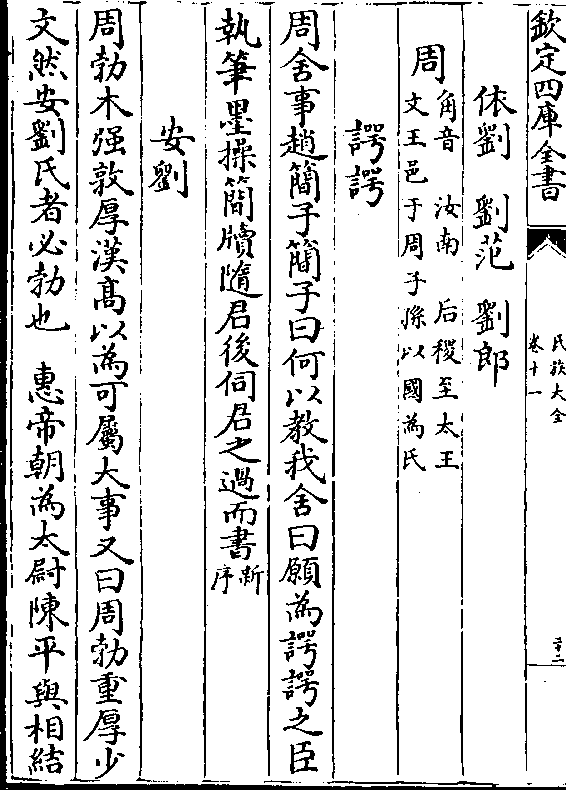 欽定四庫全書
氏族大全
卷十一
二十二
依劉 劉范 劉郎
周
角音 汝南 后稷至太王
文王邑于周子孫以國為氏
諤諤
周舍事趙簡子簡子曰何以教我舍曰願為諤諤之臣
執筆墨操簡牘隨君後伺君之過而書
新
序
安劉
周勃木强敦厚漢髙以為可屬大事又曰周勃重厚少
文然安劉氏者必勃也 惠帝朝為太尉陳平與相結